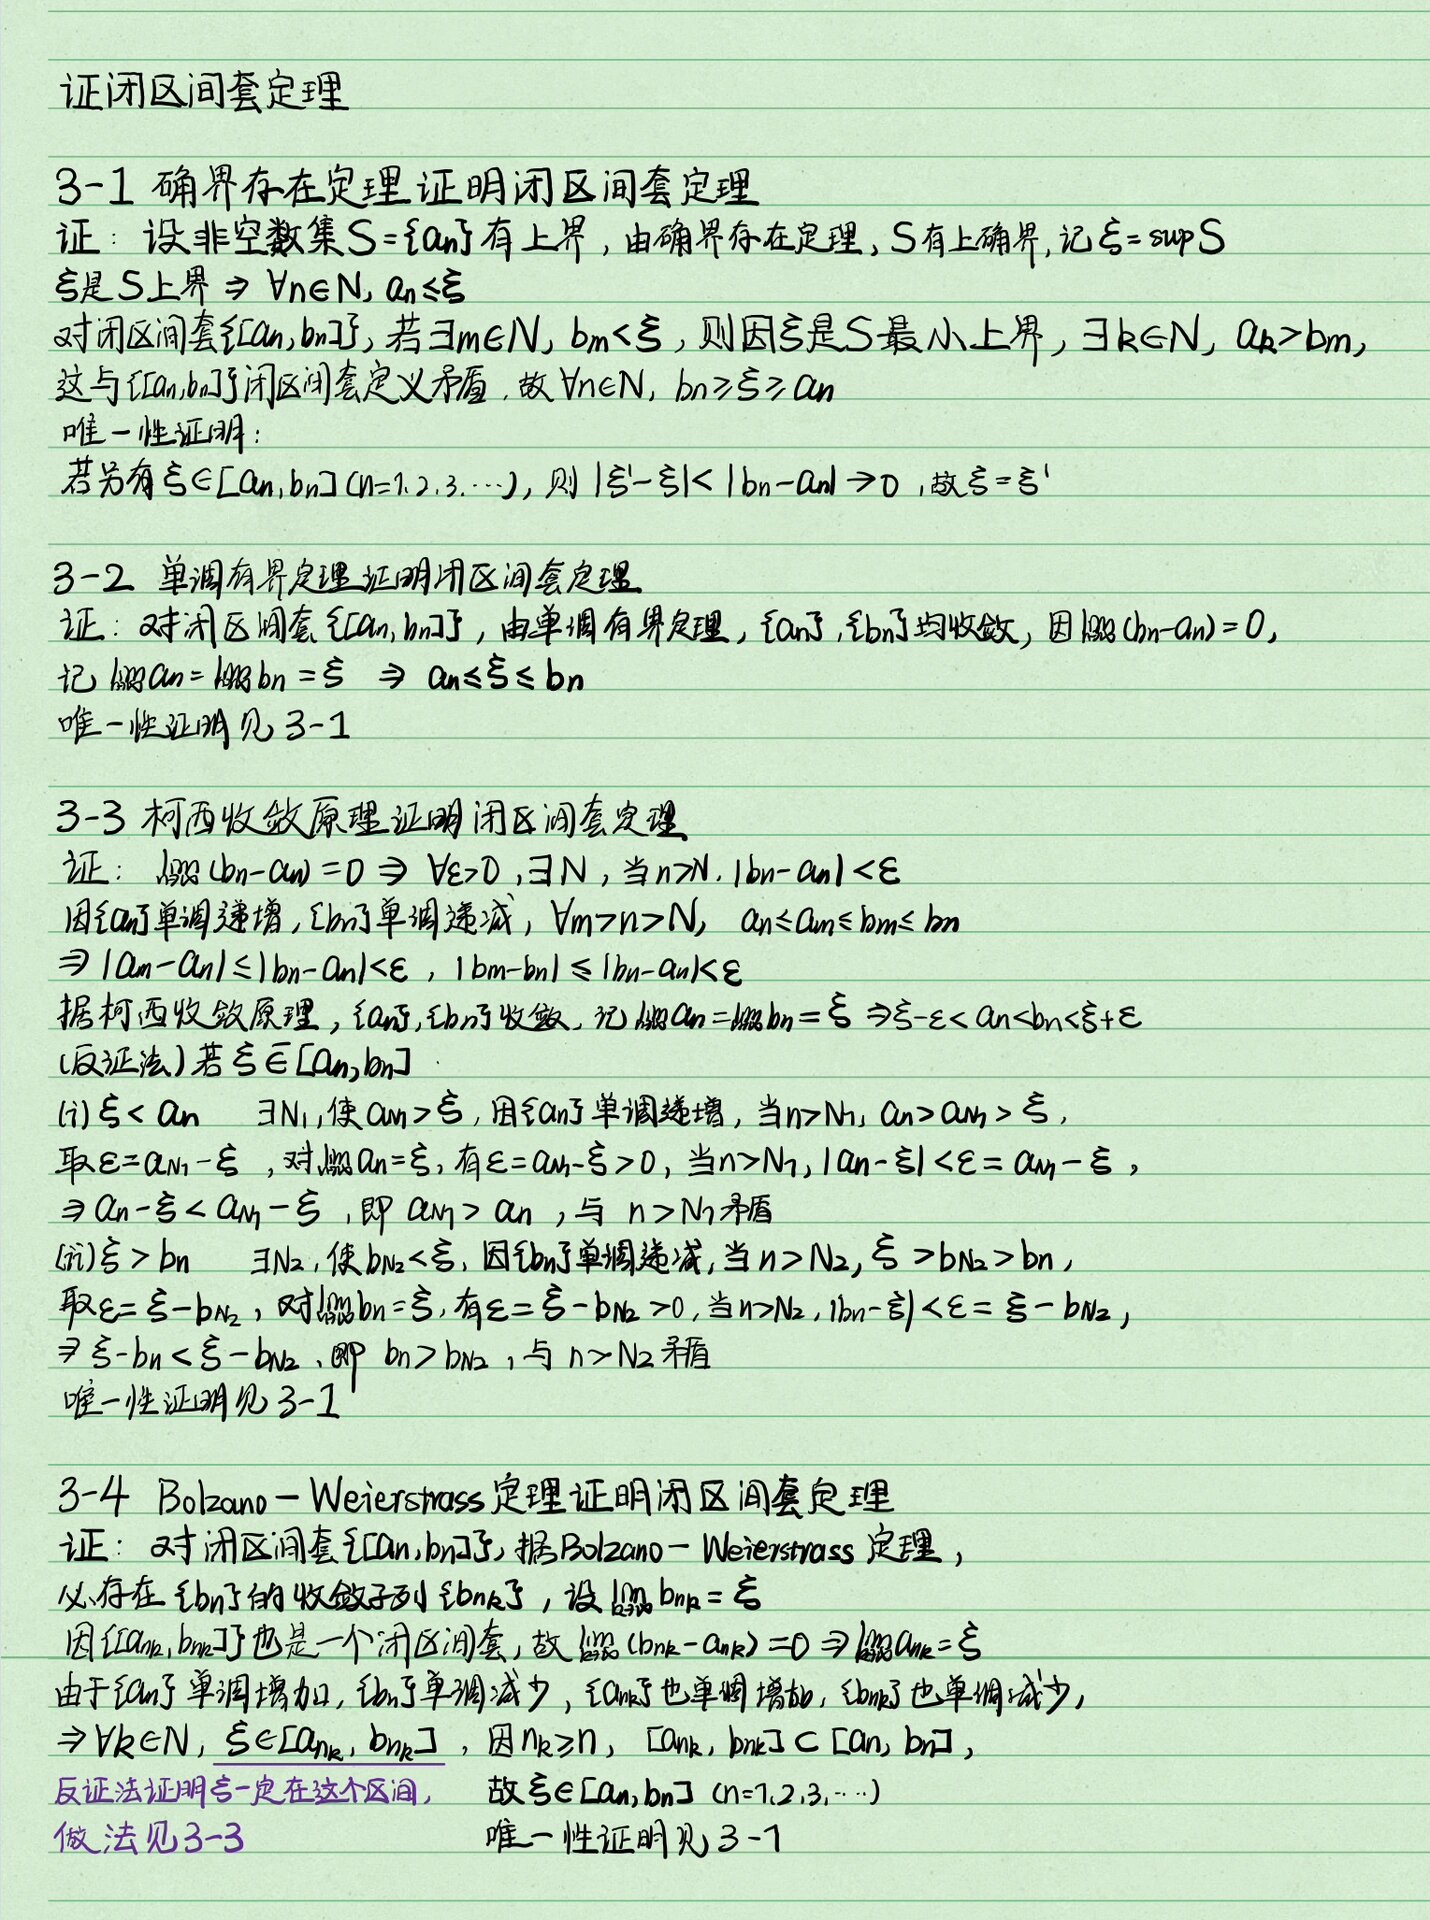 证闭区间套定理
3-1 确界存在定理证明闭区间套定理
证: 设非空数集S={an}有上界, 由确界存在定理, S有上确界, 记ξ=supS
ξ是S上界 ⇒ ∀n∈N, an≤ξ
对闭区间套{[an,bn]}, 若∃m∈N, bm<ξ, 则因ξ是S最小上界, ∃k∈N, ak>bm,
这与{[an,bn]}闭区间套定义矛盾. 故∀n∈N, bn≥ξ≥an
唯一性证明:
若另有ξ∈[an,bn](n=1.2.3.…), 则 |ξ'-ξ|<|bn-an|→0, 故ξ=ξ'
3-2 单调有界定理证明闭区间套定理
证: 对闭区间套{[an,bn]}, 由单调有界定理, {an},{bn}均收敛, 因lim n→∞(bn-an)=0,
记 lim n→∞ an=lim n→∞ bn=ξ ⇒ an≤ξ≤bn
唯一性证明见3-1
3-3 柯西收敛原理证明闭区间套定理
证: lim n→∞(bn-an)=0 ⇒ ∀ε>0, ∃N, 当n>N. |bn-an|<ε
因{an}单调递增, {bn}单调递减, ∀m>n>N, an≤am≤bm≤bn
⇒|am-an|≤|bn-an|<ε, |bm-bn|≤|bn-an|<ε
据柯西收敛原理, {an},{bn}收敛. 记 lim n→∞ an=lim n→∞ bn=ξ ⇒ξ-ε<an<bn<ξ+ε
(反证法)若ξ∈̅[an,bn]
(i) ξ<an ∃N1, 使aN1>ξ, 因{an}单调递增, 当n>N1, an>aN1>ξ,
取ε=aN1-ξ, 对lim n→∞ an=ξ, 有ε=aN1-ξ>0, 当n>N1, |an-ξ|<ε=aN1-ξ,
⇒an-ξ<aN1-ξ, 即 aN1>an, 与 n>N1矛盾
(ii)ξ>bn ∃N2, 使bN2<ξ, 因{bn}单调递减, 当n>N2, ξ>bN2>bn,
取ε=ξ-bN2, 对lim n→∞ bn=ξ, 有ε=ξ-bN2>0, 当n>N2, |bn-ξ|<ε=ξ-bN2,
⇒ξ-bn<ξ-bN2, 即 bn>bN2, 与 n>N2矛盾
唯一性证明见3-1
3-4 Bolzano-Weierstrass定理证明闭区间套定理
证: 对闭区间套{[an,bn]}, 据Bolzano-Weierstrass定理,
必存在{bn}的收敛子列{bnk}, 设lim k→∞ bnk=ξ
因{[ank,bnk]}也是一个闭区间套, 故lim k→∞(bnk-ank)=0⇒lim k→∞ ank=ξ
由于{an}单调增加, {bn}单调减少, {ank}也单调增加, {bnk}也单调减少,
⇒∀k∈N, ξ∈[ank, bnk], 因nk≥n, [ank, bnk]⊂[an, bn],
反证法证明ξ一定在这个区间, 故ξ∈[an,bn] (n=1.2.3.…)
做法见3-3 唯一性证明见3-1